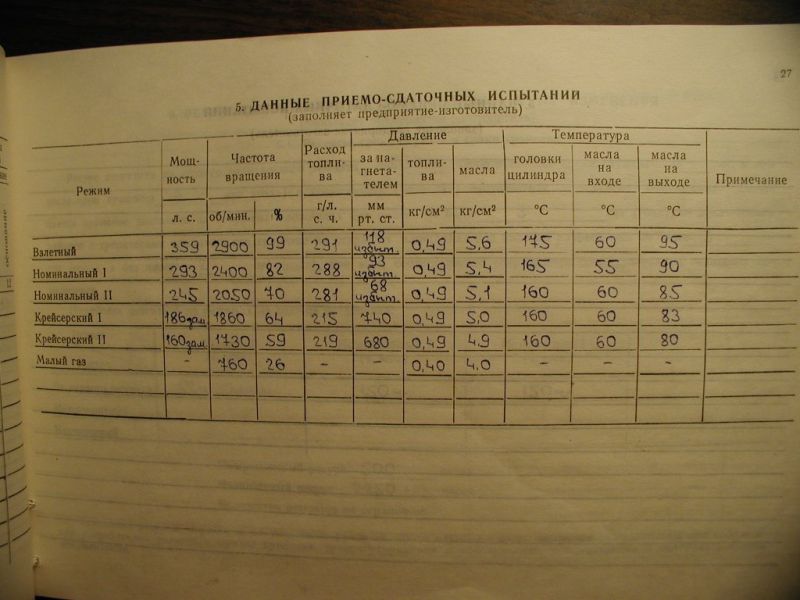 27
5. ДАННЫЕ ПРИЕМО-СДАТОЧНЫХ ИСПЫТАНИИ
(заполняет предприятие-изготовитель)
Режим Мощ-ность Частота вращения Расход топли-ва Давление Температура Примечание
за на-гнета-телем топли-ва масла головки цилиндра масла на входе масла на выходе
л. с. об/мин. % г/л. с. ч. мм рт. ст. кг/см² кг/см² °С °С °С
Взлетный 359 2900 99 291 118 избыт. 0,49 5,6 175 60 95
Номинальный I 293 2400 82 288 93 избыт. 0,49 5,4 165 55 90
Номинальный II 245 2050 70 281 68 избыт. 0,49 5,1 160 60 85
Крейсерский I 186 зам. 1860 64 215 740 0,49 5,0 160 60 83
Крейсерский II 160 зам. 1730 59 219 680 0,49 4,9 160 60 80
Малый газ – 760 26 – – 0,40 4,0 – – –